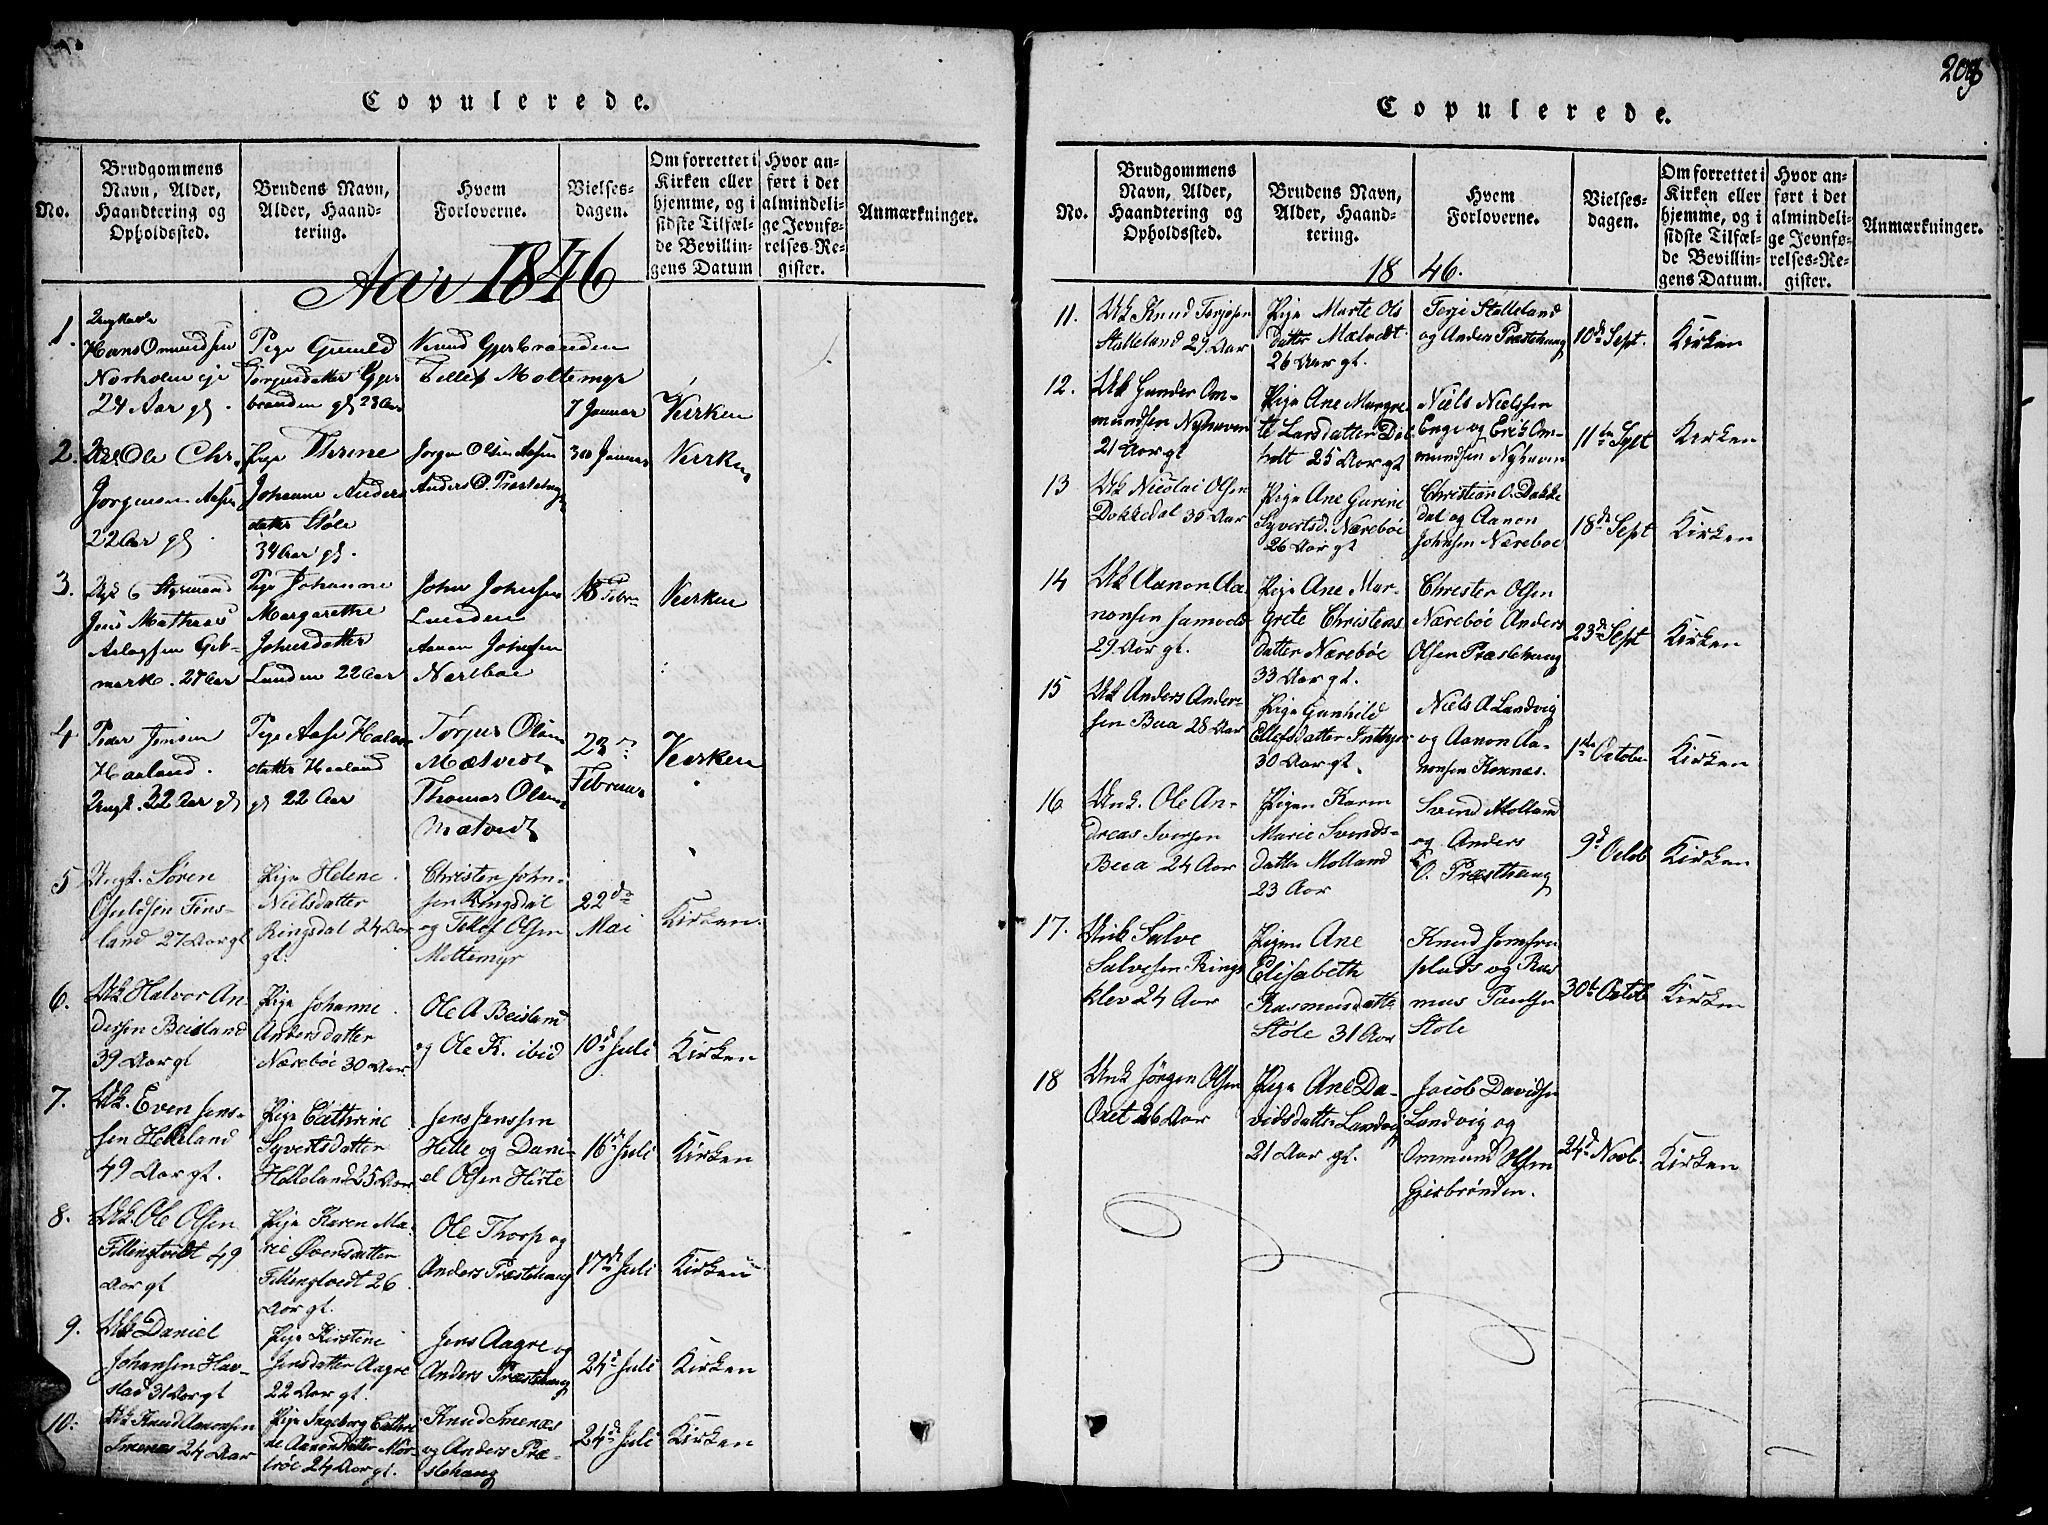 209
Copulerede.
No.
Brudgommens
Navn, Alder,
Haandtering og
Opholdssted.
Brudens Navn,
Alder, Haand-
tering.
Hvem
Forloverne.
Vielses-
dagen.
Om forrettet i
Kirken eller
hjemme, og i
sidste Tilfæl-
de Bevillin-
gens Datum
Hvor an-
ført i det
almindeli-
ge Jevnfø-
relses-Re-
gister.
Anmærkninger.
Aar 1846
1.
Ungkarl
Hans Omundsen
Norholm eje
24 Aar gl.
Pige Gunild
Torjusdatter Gjers
brønden gl 23 Aar
Knud Gjersbrønden
Tellef Moltemyr
7 Januar
Kirken
2.
Ole Chr.
Jørgensen Aasen
22 Aar gl.
Pige Therine
Johanne Anders
datter Støle
34 Aar gl.
Jørgen Olsen Aasen
Anders O. Præstehaug
30 Januar
Kirken
3.
Ungk. Styrmand
Jens Mathias
Aslagsen
27 Aar
Pige Johanne
Margarethe
Johnsdatter
Lunden 22 Aar
John Johnsen
Lunden
Aanon Johnsen
Nærebøe
18 Febr
Kirken
4.
Peder Jensen
Haaland.
Ungk. 32 Aar gl
Pige Aase Halvors
datter Haaland
gl 22 Aar
Torjus Olsen
Mætvedt
Thomas Olsen
Mætvedt
23de
Februar
Kirken
5
Ungk. Søren
Osuldsen Fins-
land 27 Aar gl
Pige Helene
Nielsdatter
Ringsdal 24 Aar
gl.
Christen John-
sen Ringsdal
og Tellef Olsen
Moltemyr
22de
Mai
Kirken.
6.
Uk Halvor An
dersen Beisland
39 Aar gl
Pige Johanne
Andersdatter
Nærebøe 30 Aar
Ole A Beisland
og Ole K. ibid
10de Juli
Kirken
7.
Uk. Even Jens-
sen Helleland
49 Aar gl.
Pige Cathrine
Syvertsdatter
Helleland 25 Aar
Jens Jenssen
Helle og Dani-
el Olsen Hirte
16de Juli
Kirken
8.
Uk. Ole Olsen
Fillingtvedt 49
Aar gl
Pige Karen Ma-
rie Evensdatter
Fillingtvedt 26
Aar gl.
Ole Thorp og
Anders Præstehaug
17de Juli
Kirken
9.
Uk Daniel
Johansen Hav-
stad 31 Aar gl
Pige Kirstine
Jensdatter Aagre
22 Aar gl.
Jens Aagre og
Anders Præstehaug
24de Juli
Kirken
10.
Uk Knud Aanonsen
Imenæs 24 Aar
Pige Ingeborg Cathri
ne Aanondatter Mør
24 Aar gl.
Knud Imenæs
og Anders Præ-
stehaug
24de Juli
Kirken
Copulerede.
No.
Brudgommens
Navn, Alder,
Haandtering og
Opholdssted.
Brudens Navn,
Alder, Haand-
tering.
Hvem
Forloverne.
Vielses-
dagen.
Om forrettet i
Kirken eller
hjemme, og i
sidste Tilfæl-
de Bevillin-
gens Datum.
Hvor an-
ført i det
almindeli-
ge Jevnfø-
relses-Re-
gister.
Anmærkninger.
1846.
11.
Uk Knud Terjesen
Stalleland 29 Aar
Pige Marte Ols
datter Mælvedt
26 Aar gl.
Terje Stalleland
og Anders Præstehaug
10de Sept.
Kirken
12.
Uk Gunder Om-
mundsen Nyhaven
21 Aar gl
Pige Ane Margre
te Larsdatter Dal
holt 25 Aar gl
Niels Nielssen
Enge og Erik Om-
mundsen Nyhaven
11te Sept
Kirken
13
Uk Nicolai Olsen
Dokkedal 35 Aar
Pige Ane Gurine
Syvertsd. Nærebøe
26 Aar gl
Christian O. Dokke
dal og Aanon
Johnsen Nærebøe
18de Sept
Kirken
14
Uk Aanon Aa-
nonsen Jamvold
29 Aar gl.
Pige Ane Mar-
grete Christens
datter Nærebøe
33 Aar gl.
Christen Olsen
Nærebøe Anders
Olsen Præstehaug
23de Sept
Kirken
15
Uk Anders Ander-
sen Bua 28 Aar
Pige Gunhild
Ellefsdatter Inthjør
30 Aar gl.
Niels A Landvig
og Aanon Aa-
nonsen Kornæs.
1ste October
Kirken
16
Unk. Ole An-
dreas Iversen
Bua 24 Aar
Pigen Karen
Marie Svends-
datter Molland
23 Aar
Svend Molland
og Anders
O. Præsthaug
9de Octob
Kirken
17.
Unk Salve
Salvesen Rings
klev 24 Aar
Pigen Ane
Elisabeth
Rasmusdatter
Støle 31 Aar
Knud Jomfru
plads og Ras
mus Paulsen
Støle
30te Octob
Kirken
18
Unk Jørgen Olsen
Oxet 26 Aar
Pige Ane Da-
vidsdatter Landvig
21 Aar gl.
Jacob Davidsen
Landvig og
Ommund Olsen
Gjesbrønden.
24de Novb.
Kirken